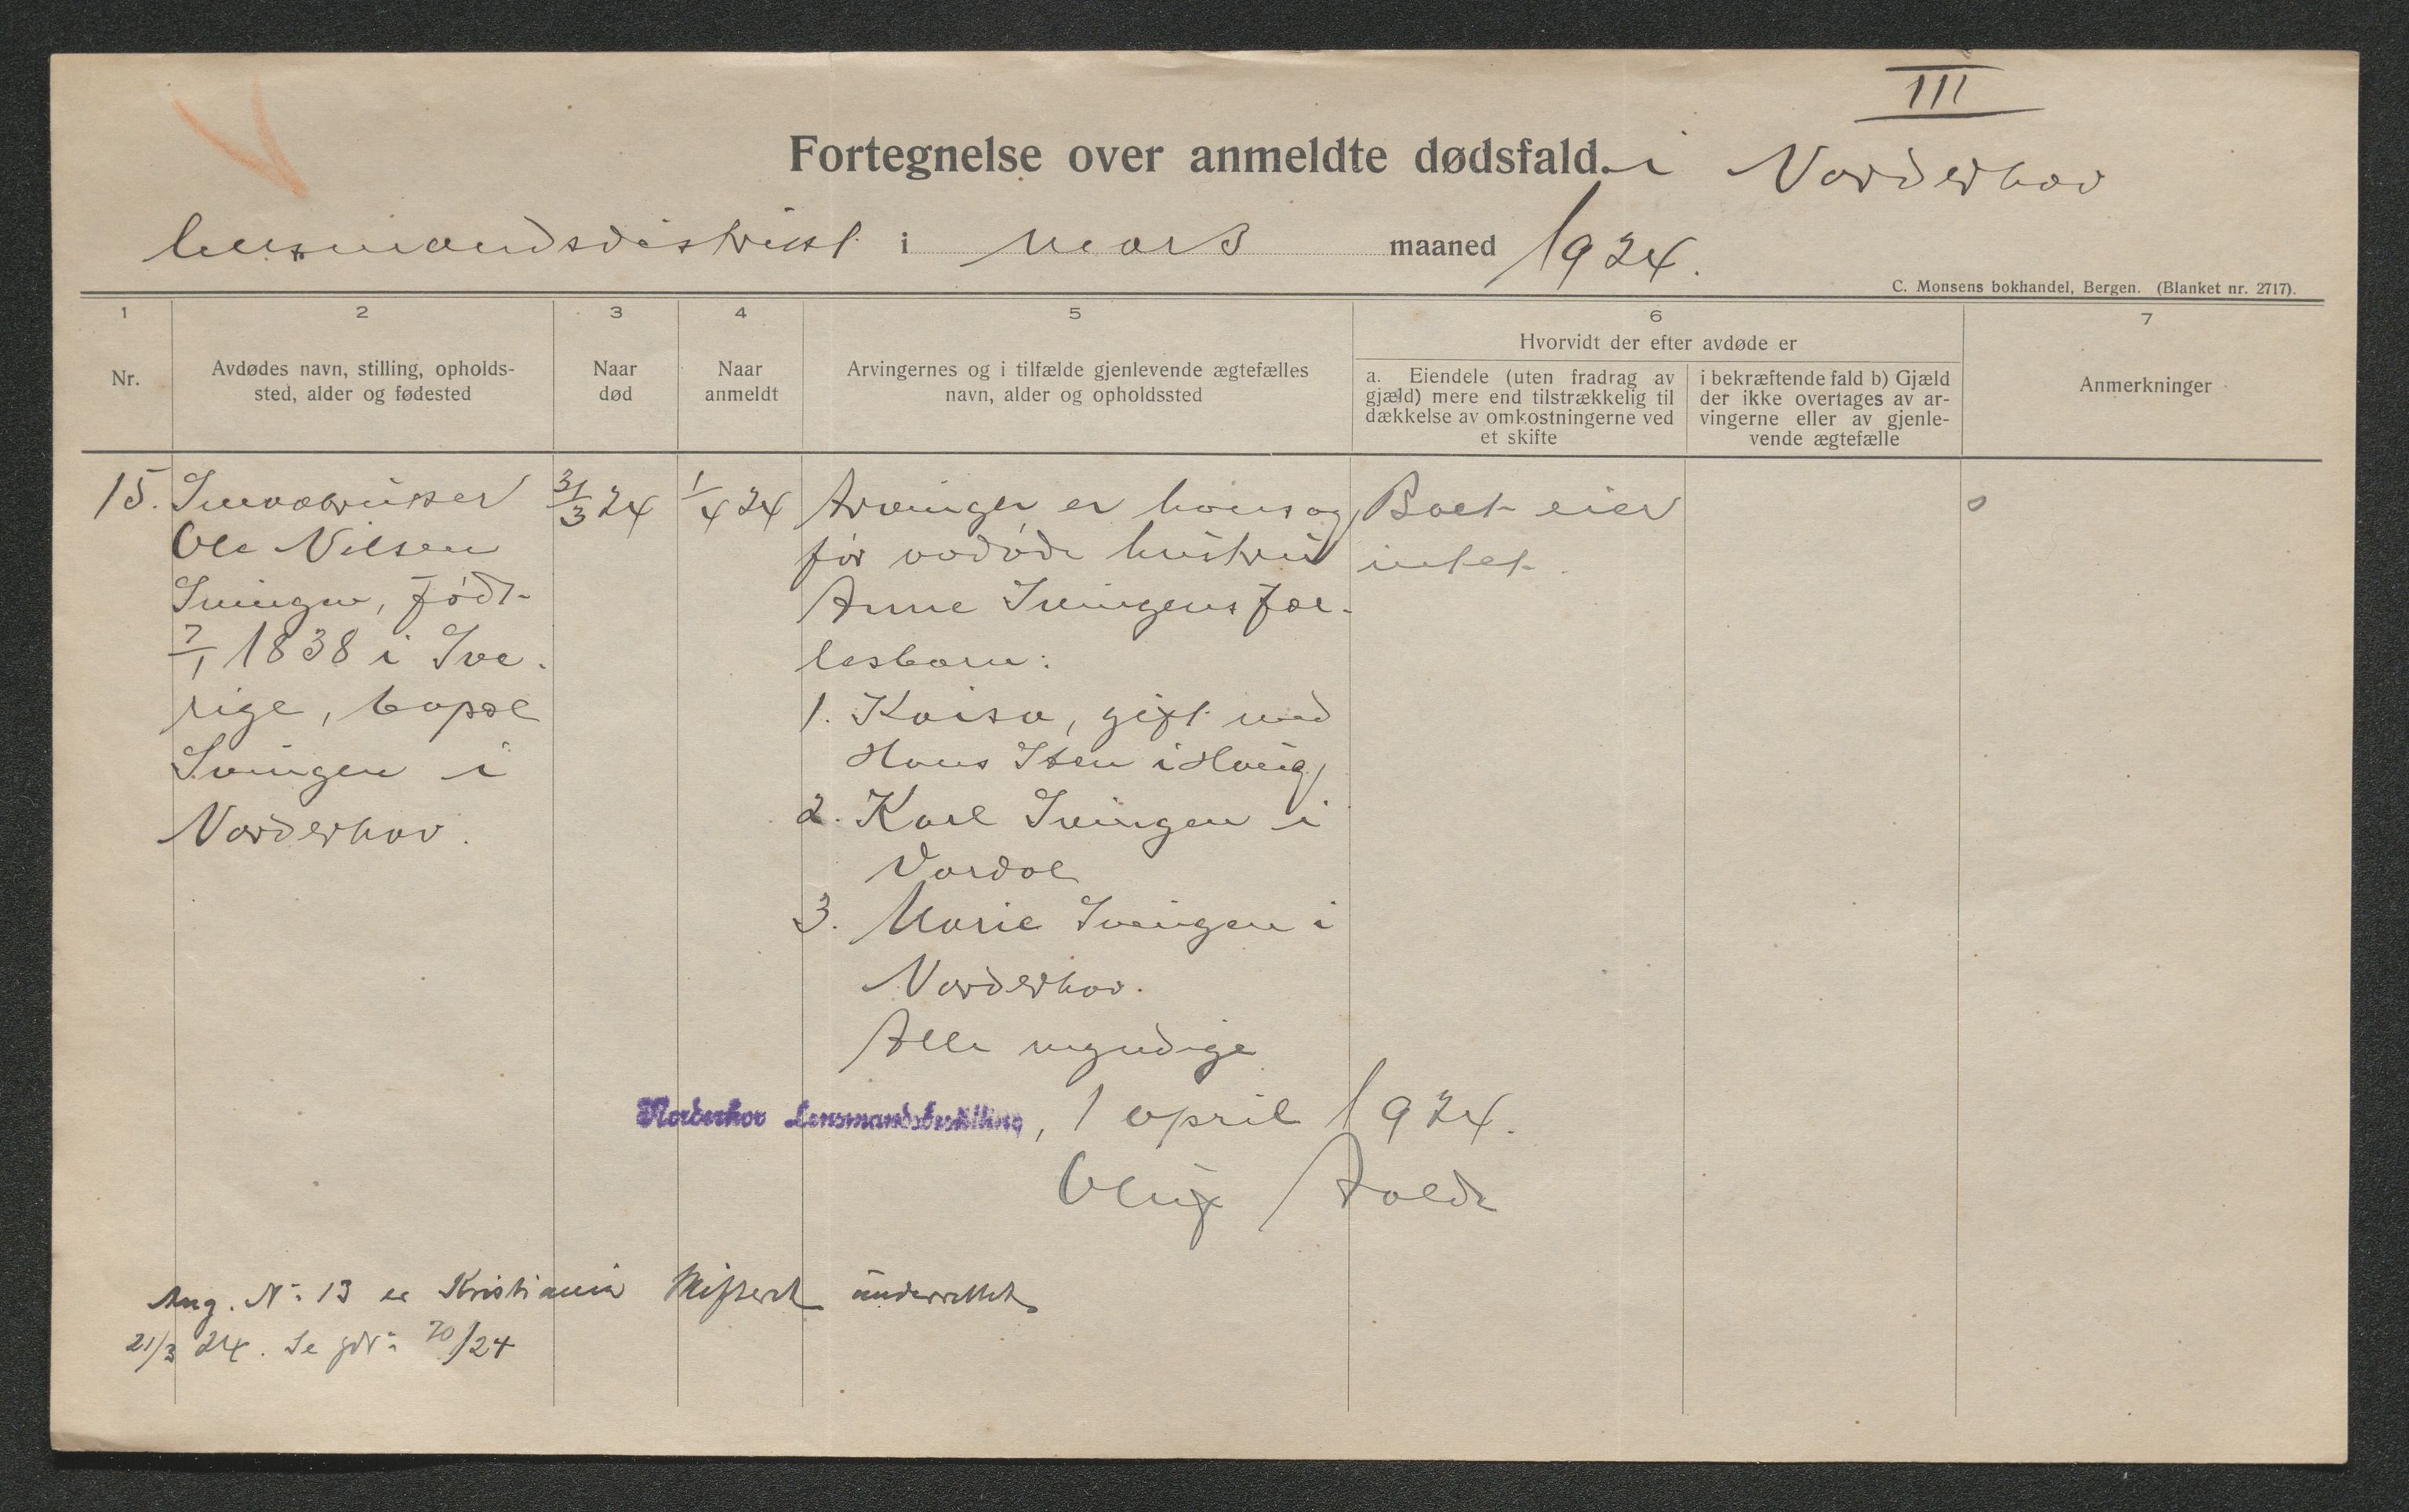 III
Fortegnelse over anmeldte dødsfald i Norderhov
lensmandsdistrikt i mars maaned 1924.
C. Monsens bokhandel, Bergen. (Blanket nr. 2717).
1 2 3 4 5 6 7
Hvorvidt der efter avdøde er
Nr.
Avdødes navn, stilling, opholds-
sted, alder og fødested
Naar
død
Naar
anmeldt
Arvingernes og i tilfælde gjenlevende ægtefælles
navn, alder og opholdssted
a. Eiendele (uten fradrag av
gjæld) mere end tilstrækkelig til
dækkelse av omkostningerne ved
et skifte
i bekræftende fald b) Gjæld
der ikke overtages av ar-
vingerne eller av gjenle-
vende ægtefælle
Anmerkninger
15.
Smaabruker
Ole Nilsen
Svingen, født
7/1 1838 i Sve-
rige, bopæl
Svingen i
Norderhov.
31/3 24
1/4 24
Arvinger er hans og
før avdøde hustru
Anne Svingens fæl-
lesbarn:
1. Kaisa, gift med
Hans Sten i Haug,
2. Karl Svingen i
Vardal
3. Marie Svingen i
Norderhov.
Alle myndige
Boet eier
intet.
0
Norderhov Lensmandsbestilling, 1 april 1924.
Oluf Aalde
Ang. No 13 er Kristiania Skifterett underrettet
21/3 24. Se 70/24